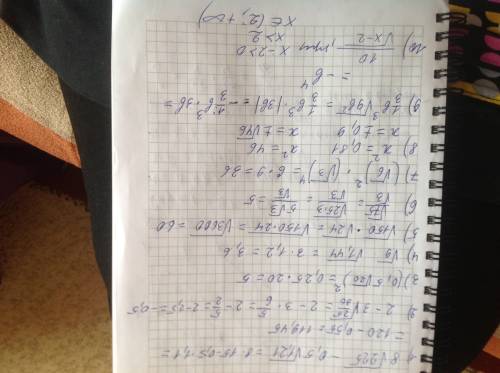 1. 8√225 − 0,5√1,21 = 8·15 − 0,5·1,1 =
= 120 − 0,55 = 119,45
2) 2 − 3√(25/36) = 2 − 3 · 5/6 = 2 − 5/2 = 2 − 2,5 = −0,5
3) (0,5√20)² = 0,25 · 20 = 5
4) √9 · √1,44 = 3 · 1,2 = 3,6
5) √150 · √24 = √150·24 = √3600 = 60
6) √75/√3 = √25·3/√3 = 5√3/√3 = 5
7) (√6)² · (√3)⁴ = 6 · 9 = 36
8) x² = 0,81 x² = 46
x = ±0,9 x = ±√46
9) 1/3 b³ √9b² = 1/3 b³ · |3b| = −1/3 · b³ · 3b =
= −b⁴
10) 10/√x−2, при x−2>0
x>2
x∈(2; +∞)